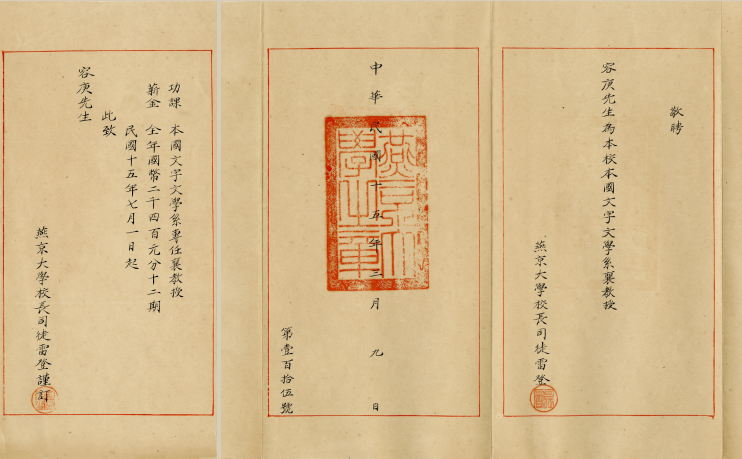 敬聘
容庚先生為本校本國文字文學系襄教授
燕京大學校長司徒雷登
中華民國十五年三月九日
燕京大學之章
第壹百拾伍號
功課　本國文字文學系專任襄教授
薪金　全年國幣二千四百元分十二期
民國十五年七月一日起
此致
容庚先生
燕京大學校長司徒雷登謹訂